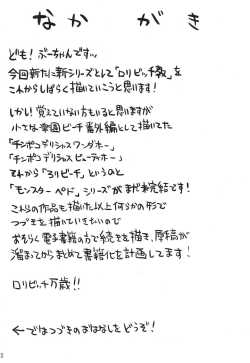 なかがき
ども！ぶーちゃんですッ
今回新たに新シリーズとして「ロリビッチ教」を
これからしばらく描いていこうと思います！
しかし！覚えていない方もいると思いますが
小さな楽園ピーチ番外編として描いてた
「チンポコデリシャスワンダホー」
「チンポコデリシャスビューティホー」
それから「ろリピーチ」というのと
「モンスターペド」シリーズがまだ未完結です！
これらの作品も描いた以上何らかの形で
つづきを描いていきたいので
おそらく電子書籍の方で続きを描き、原稿が
溜まってからまとめて書籍化を計画してます！
ロリビッチ万歳!!
←ではつづきのおはなしをどうぞ！